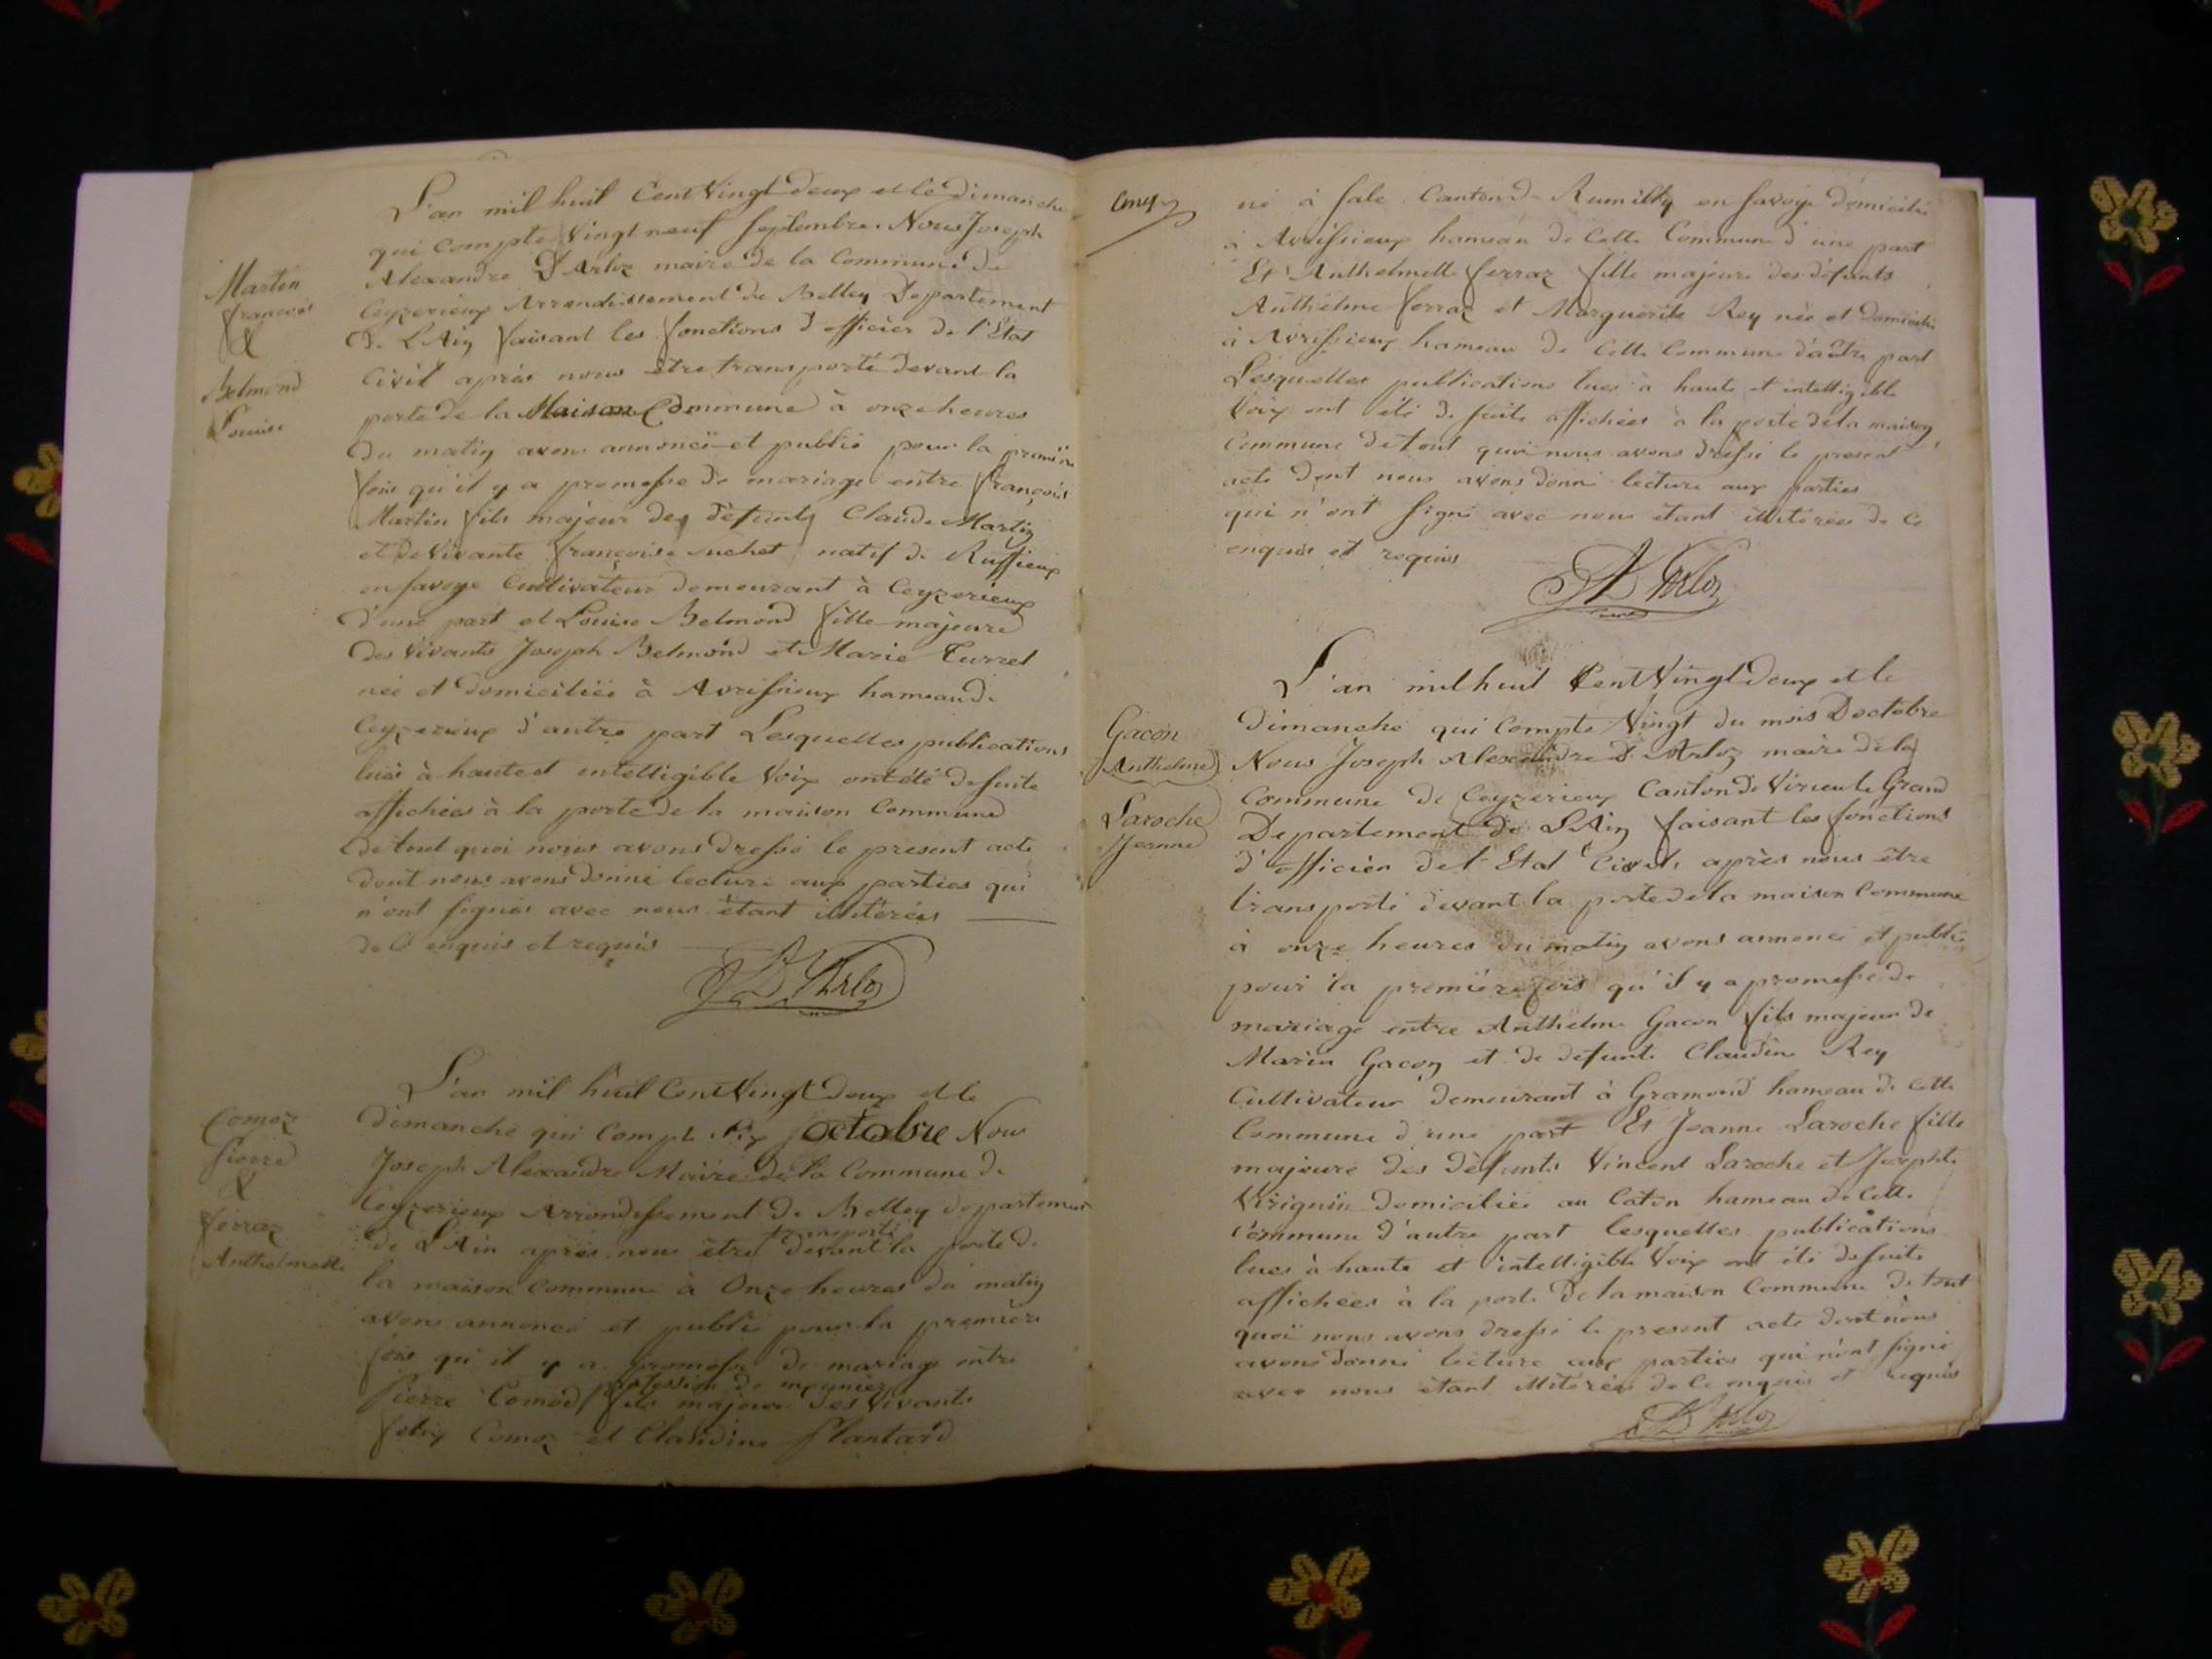 L'an mil huit Cent Vingt deux et le Dimanche
qui Compte Vingt neuf septembre. Nous Joseph
Alexandre D'Arloz maire de la Commune de
Ceyzerieux Arrondissement de Belley Departement
De L'Ain faisant les fonctions d'officier de l'Etat
Civil après nous être transporté devant la
porte de la Maison Commune à onze heures
Du matin avons annoncé et publié pour la première
fois qu'il y a promesse de mariage entre françois
Martin fils majeur des défunts Claude Martin
et de Vivante françoise suchet natif de Ruffieux
en savoye Cultivateur demeurant à Ceyzerieux
d'une part et Louise Belmond fille majeure
des Vivants Joseph Belmond et Marie Turrel
née et domiciliée à Avrissieux hameau de
Ceyzerieux d'autre part Lesquelles publications
lues à haute et intelligible Voix ont été de suite
affichées à la porte de la maison Commune
de tout quoi nous avons dressé le present acte
dont nous avons donné lecture aux parties qui
n'ont signés avec nous étant illitérées
de ce enquis et requis
D'Arloz
Martin
françois
&
Belmond
Louise
L'an mil huit Cent Vingt Deux et le
Dimanche qui Compte six octobre Nous
Joseph Alexandre Maire de la Commune de
Ceyzerieux Arrondissement de Belley departement
de L'Ain après nous être transporté devant la porte de
la maison Commune à Onze heures du matin
avons annoncé et publié pour la première
fois qu'il y a promesse de mariage entre
profession de meunier
Pierre Comoz fils majeur des Vivants
Comoz et Claudine Plantard
Comoz
Pierre
&
ferraz
Anthelmette
né à sale Canton de Rumilly en savoye domicilié
à Avrissieux hameau de Cette Commune d'une part
Et Anthelmette ferraz fille majeure des défunts
Anthelme ferraz et Marguerite Rey née et domiciliée
à Avrissieux hameau de Cette Commune d'autre part
Lesquelles publications lues à haute et intelligible
Voix ont été de suite affichées à la porte de la maison
Commune de tout quoi nous avons dressé le present
acte dont nous avons donné lecture aux parties
qui n'ont signé avec nous étant illitérées de ce
enquis et requis
D'Arloz
L'an mil huit Cent Vingt Deux et le
Dimanche qui Compte Vingt du mois D'octobre
Nous Joseph Alexandre D'Arloz maire de la
Commune de Ceyzerieux Canton de Virieu le Grand
Departement de L'Ain faisant les fonctions
d'officier de l'Etat Civil, après nous être
transporté devant la porte de la maison Commune
à onze heures du matin avons annoncé et publié
pour la première fois qu'il y a promesse de
mariage entre Anthelme Gacon fils majeur de
Marin Gacon et de defunte Claudine Rey
Cultivateur demeurant à Gramond hameau de Cette
Commune d'une part Et Jeanne Laroche fille
majeure des défunts Vincent Laroche et Josephte
Virignin domiciliée au Caton hameau de Cette
Commune d'autre part lesquelles publications
lues à haute et intelligible Voix ont été de suite
affichées à la porte De la maison Commune de tout
quoi nous avons dressé le present acte dont nous
avons donné lecture aux parties qui n'ont signé
avec nous étant illitérées de ce enquis et requis
D'Arloz
Gacon
Anthelme
Laroche
Jeanne